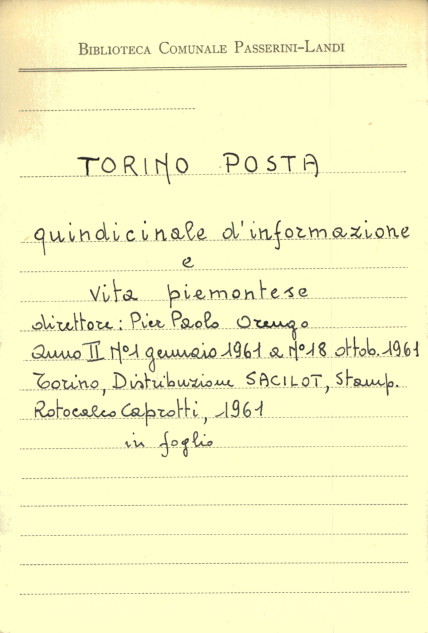 BIBLIOTECA COMUNALE PASSERINI-LANDI
TORINO POSTA
quindicinale d'informazione
e
vita piemontese
direttore: Pier Paolo Orengo
Anno II N°1 gennaio 1961 a N°18 ottob. 1961
Torino, Distribuzione SACILOT, Stamp.
Rotocalco Caprotti, 1961
in foglio